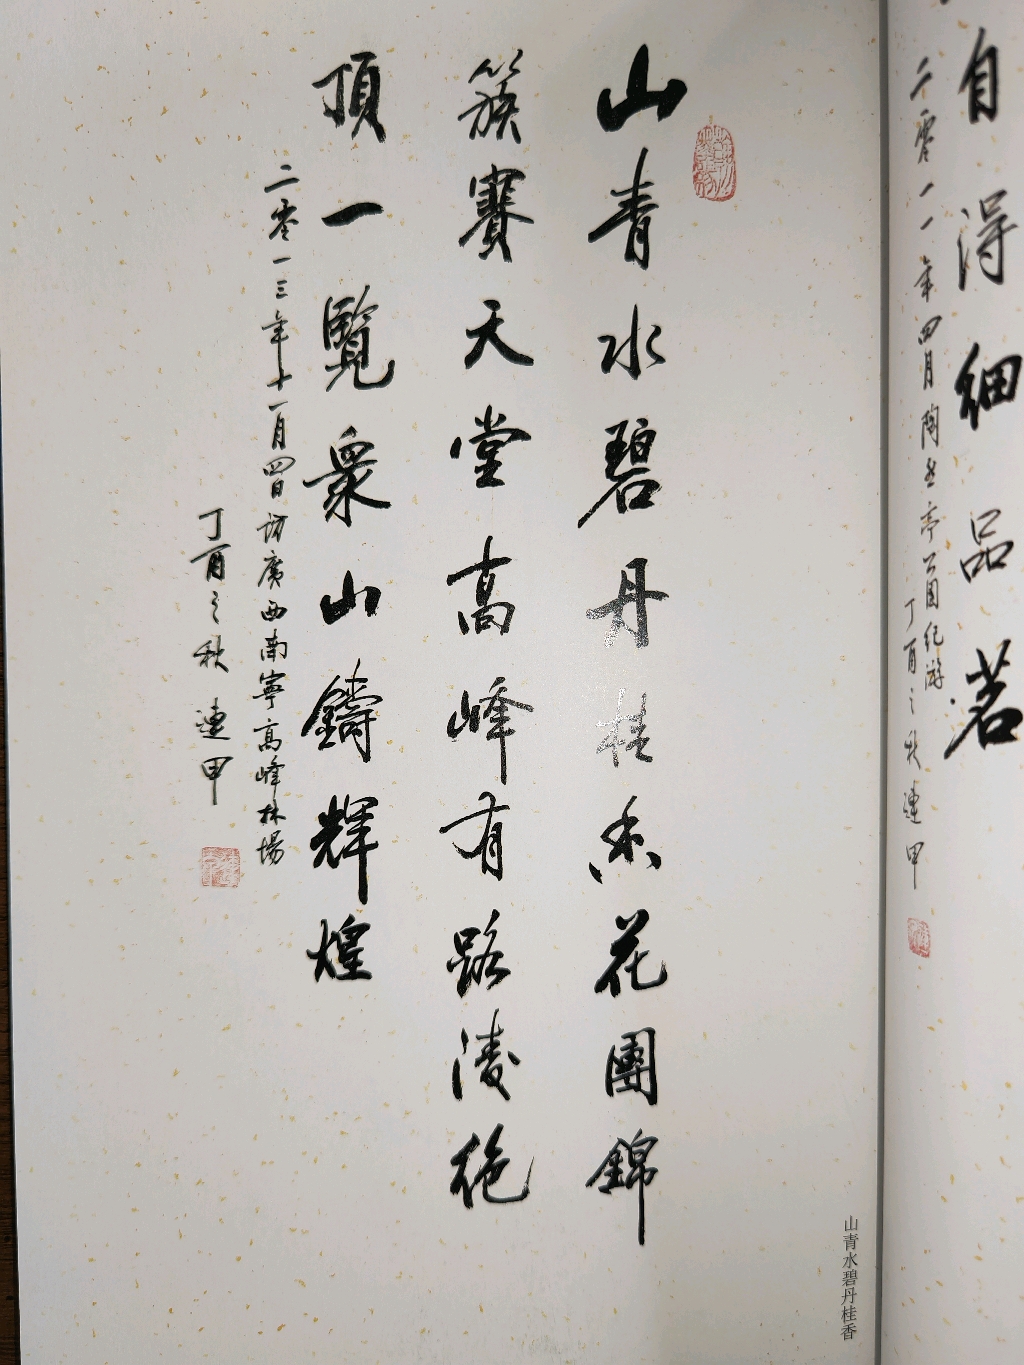 自得細品茗
二零一一年四月陶然亭公園纪游
丁酉之秋連甲
山青水碧丹桂香花團錦
簇賽天堂高峰有路淩绝
頂一覽衆山鑄輝煌
二零一三年十一月四日访廣西南寧高峰林場
丁酉之秋連甲
山青水碧丹桂香